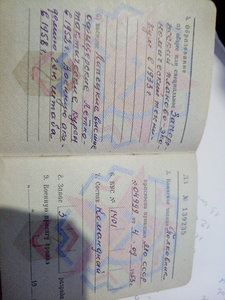 3. Образование
а) общее или специальное Запорож-
жский планово-эко-
номический техни-
кум в 1933 г.
б) военное Липецкие высшие
офицерские летно-
тактические курсы
в 1952 г. Военную ака-
демию ген. штаба
в 1958 г.
ДЗ № 139235
5. Воинское звание Полковник
присвоено приказом МО ссср
№04999 от 4-09 1953 г.
6. ВУС № 1401
7. Состав Командный
8. Запас 3 разряда
9. Военную присягу принял
19